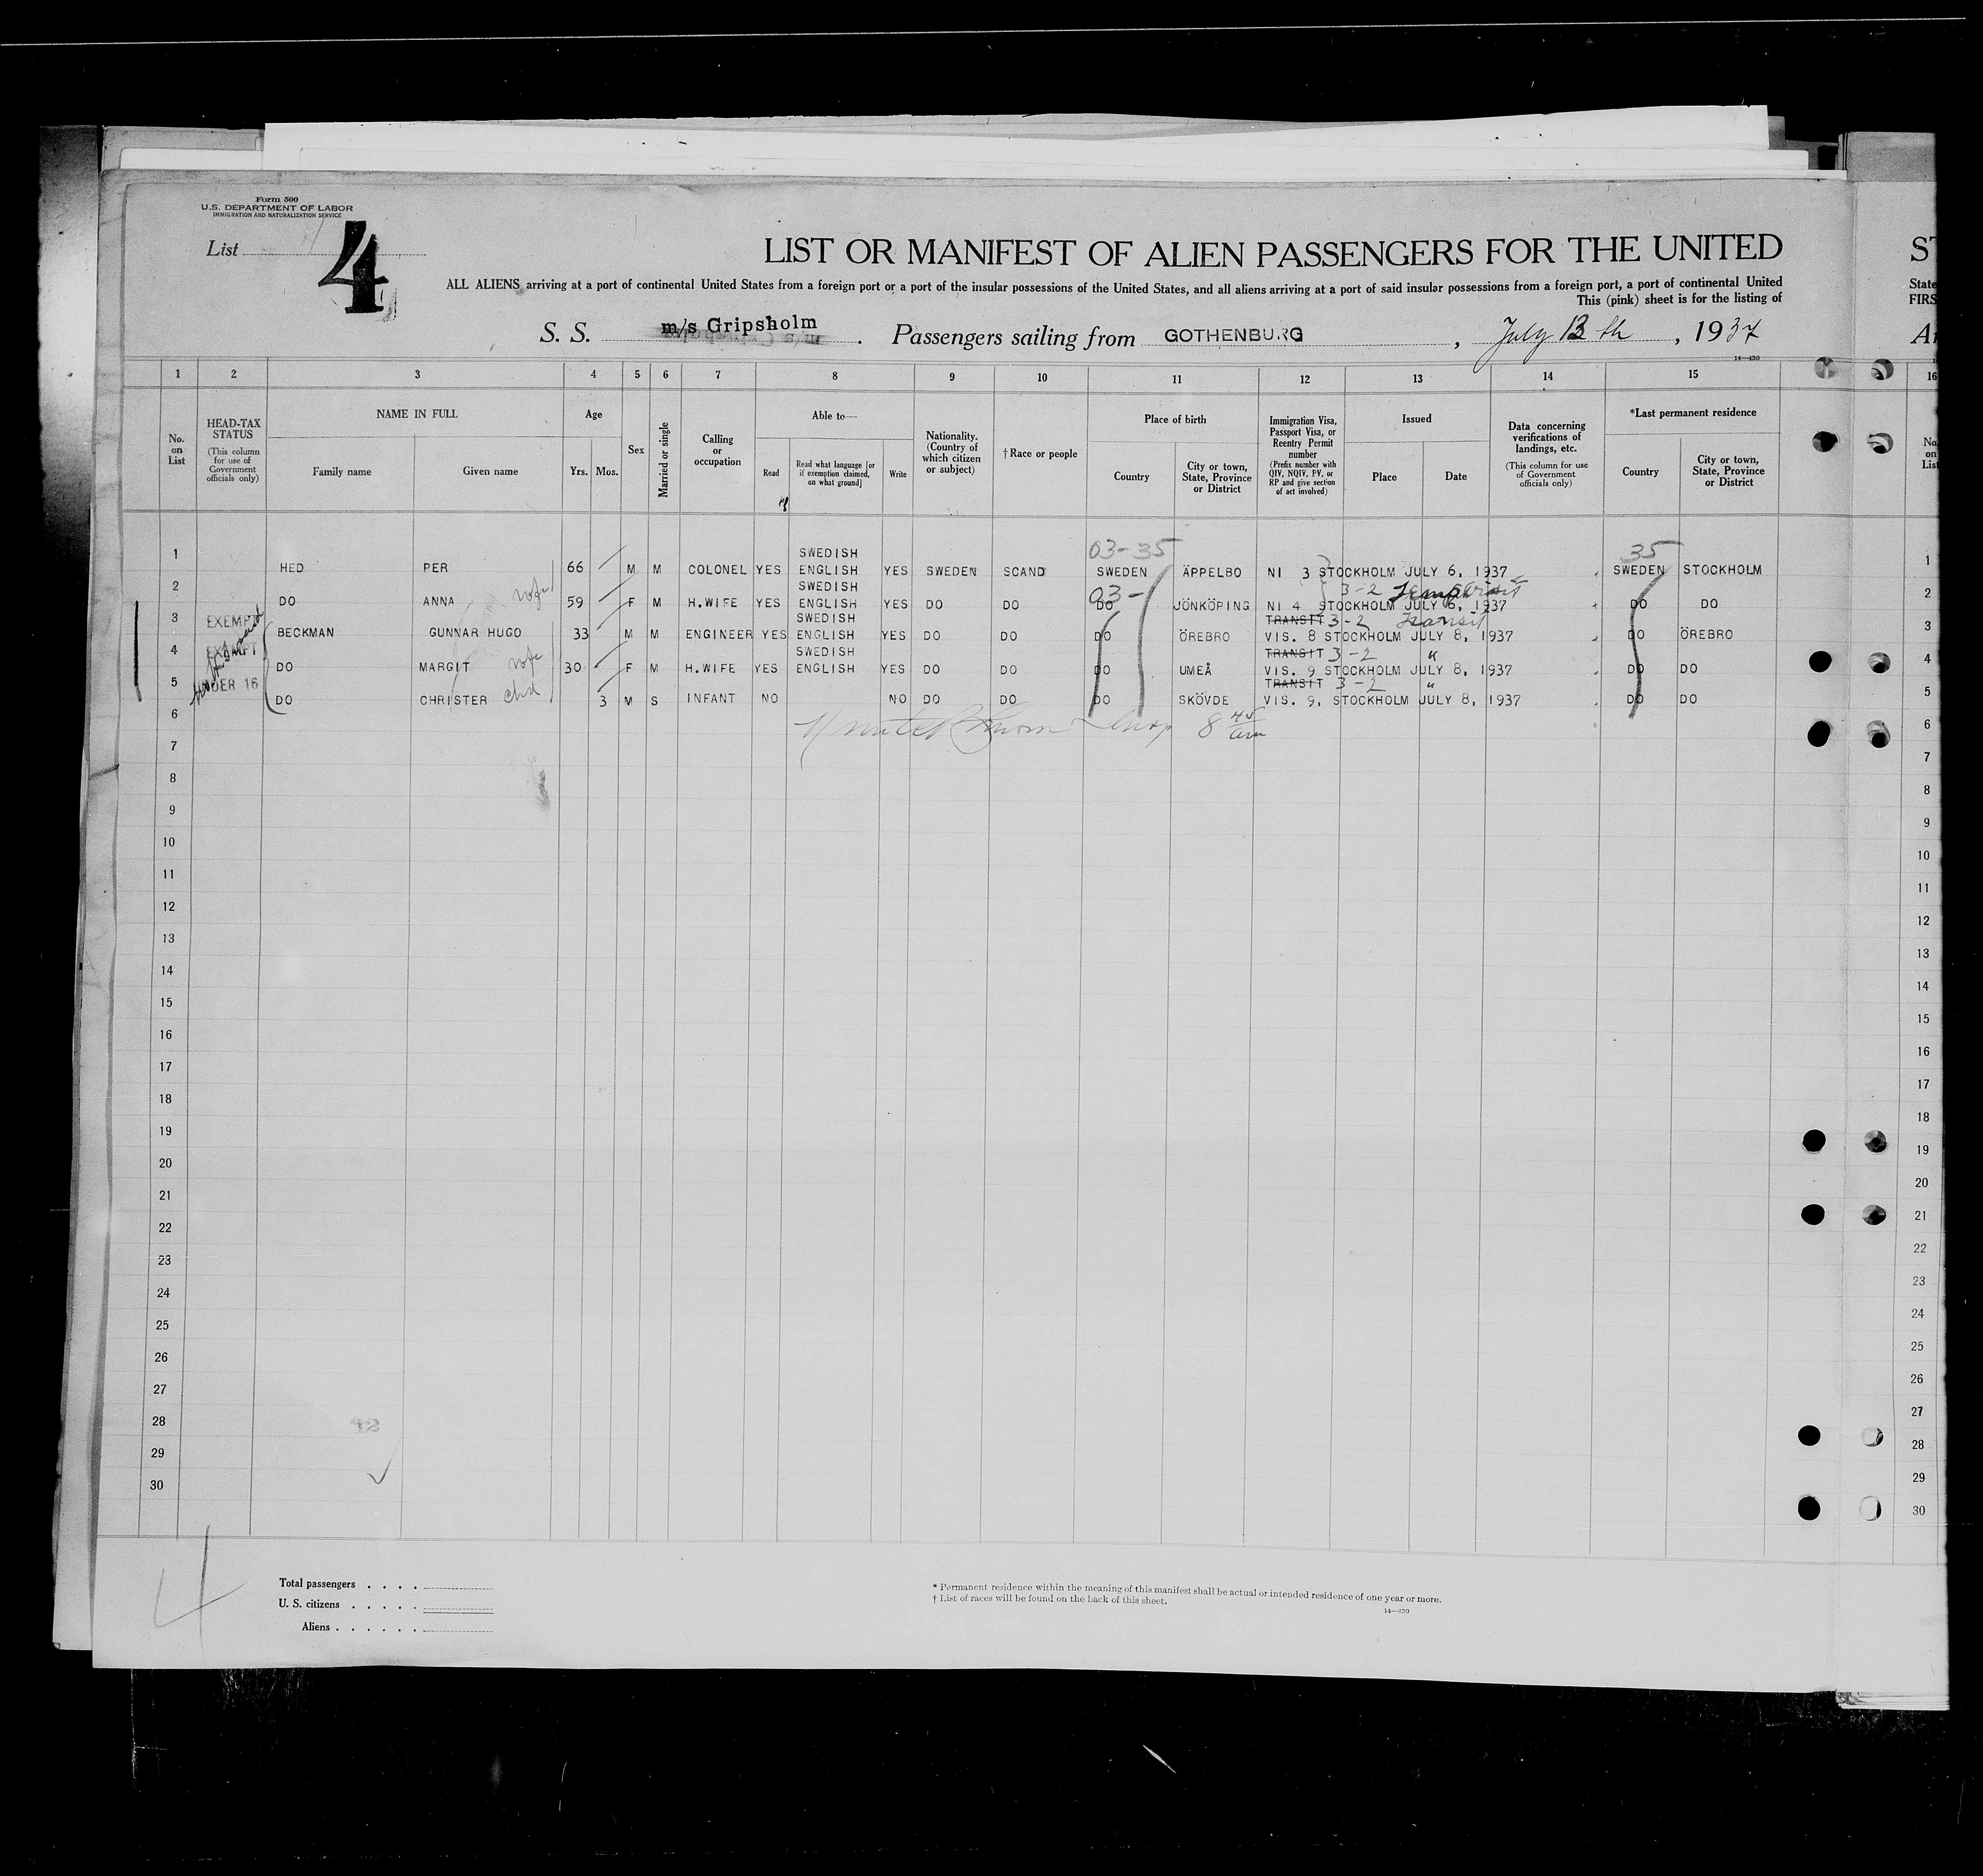 Form 500
U.S. DEPARTMENT OF LABOR
IMMIGRATION AND NATURALIZATION SERVICE
List 4
LIST OR MANIFEST OF ALIEN PASSENGERS FOR THE UNITED
ST
ALL ALIENS arriving at a port of continental United States from a foreign port or a port of the insular possessions of the United States, and all aliens arriving at a port of said insular possessions from a foreign port, a port of continental United
State
This (pink) sheet is for the listing of
FIRS
S. S. m/s Gripsholm . Passengers sailing from GOTHENBURG , July 13 th , 1937
14—430
1 2 3 4 5 6 7 8 9 10 11 12 13 14 15 16
No. on List
HEAD-TAX STATUS (This column for use of Government officials only)
NAME IN FULL
Family name Given name
Age
Yrs. Mos.
Sex
Married or single
Calling or occupation
Able to—
Read
Read what language [or if exemption claimed, on what ground]
Write
Nationality. (Country of which citizen or subject)
†Race or people
Place of birth
Country
City or town, State, Province or District
Immigration Visa, Passport Visa, or Reentry Permit number (Prefix number with QIV, NQIV, PV, or RP and give section of act involved)
Issued
Place Date
Data concerning verifications of landings, etc. (This column for use of Government officials only)
*Last permanent residence
Country
City or town, State, Province or District
No. on List
03-35 35
SWEDISH
1 HED PER 66 M M COLONEL YES ENGLISH YES SWEDEN SCAND SWEDEN ÄPPELBO NI 3 STOCKHOLM JULY 6, 1937 SWEDEN STOCKHOLM 1
SWEDISH 03- 3-2
2 DO ANNA wife 59 F M H.WIFE YES ENGLISH YES DO DO DO JÖNKÖPING NI 4 STOCKHOLM JULY 6, 1937 DO DO 2
SWEDISH TRANSIT 3-2 Transit
3 EXEMPT BECKMAN GUNNAR HUGO 33 M M ENGINEER YES ENGLISH YES DO DO DO ÖREBRO VIS. 8 STOCKHOLM JULY 8, 1937 DO ÖREBRO 3
SWEDISH TRANSIT 3-2 "
4 EXEMPT DO MARGIT wife 30 F M H.WIFE YES ENGLISH YES DO DO DO UMEÅ VIS. 9 STOCKHOLM JULY 8, 1937 DO DO 4
TRANSIT 3-2 "
5 UNDER 16 DO CHRISTER chd 3 M S INFANT NO NO DO DO DO SKÖVDE VIS. 9, STOCKHOLM JULY 8, 1937 DO DO 5
6 8 45 am 6
7 7
8 8
9 9
10 10
11 11
12 12
13 13
14 14
15 15
16 16
17 17
18 18
19 19
20 20
21 21
22 22
23 23
24 24
25 25
26 26
27 27
28 28
29 29
30 30
4
Total passengers . . . .
U. S. citizens . . . . .
Aliens . . . . . .
* Permanent residence within the meaning of this manifest shall be actual or intended residence of one year or more.
† List of races will be found on the back of this sheet.
14—430